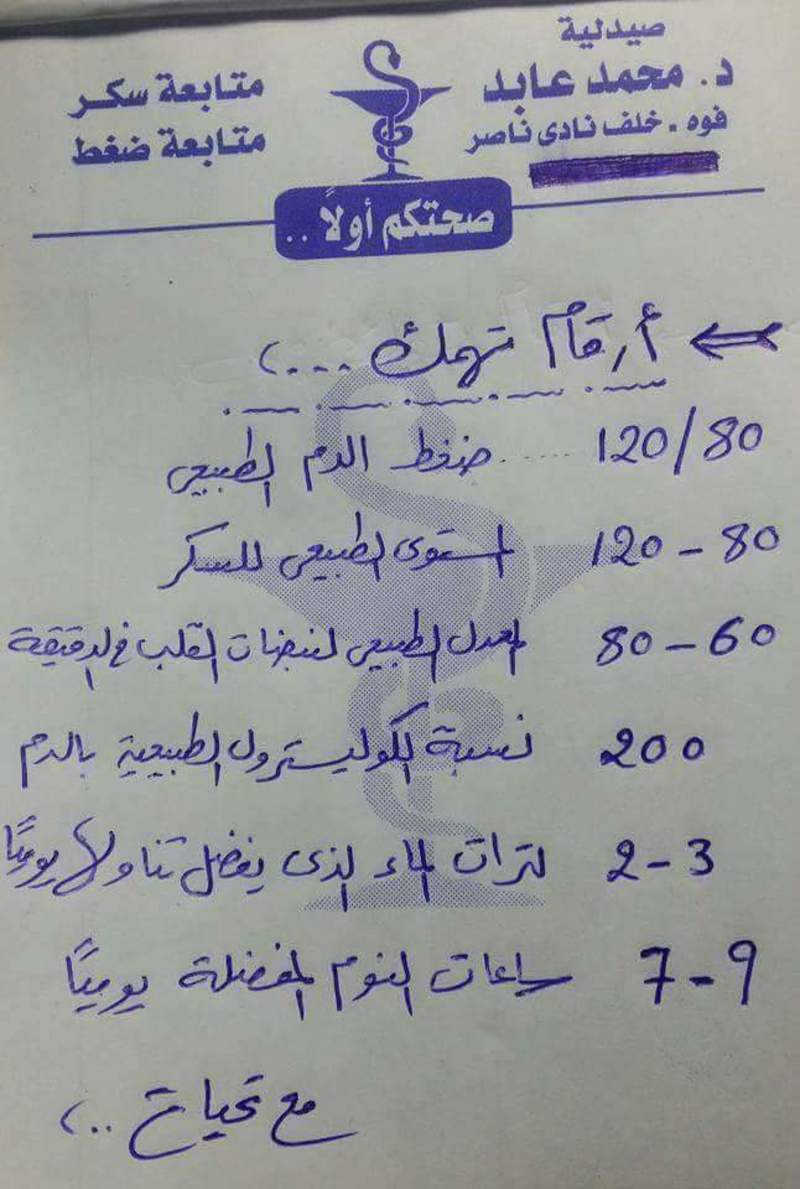 صيدلية
د. محمد عابد
فوه . خلف نادى ناصر
متابعة سكر
متابعة ضغط
صحتكم أولاً ..
أرقام تهمك ...
120/80 ..... ضغط الدم الطبيعى
120 - 80 المستوى الطبيعى للسكر
80 - 60 المعدل الطبيعى لنبضات القلب فى الدقيقة
200 نسبة الكوليسترول الطبيعية بالدم
2 - 3 لترات الماء الذى يفضل تناولها يوميًا
7 - 9 ساعات النوم المفضلة يوميًا
مع تحياتى ..